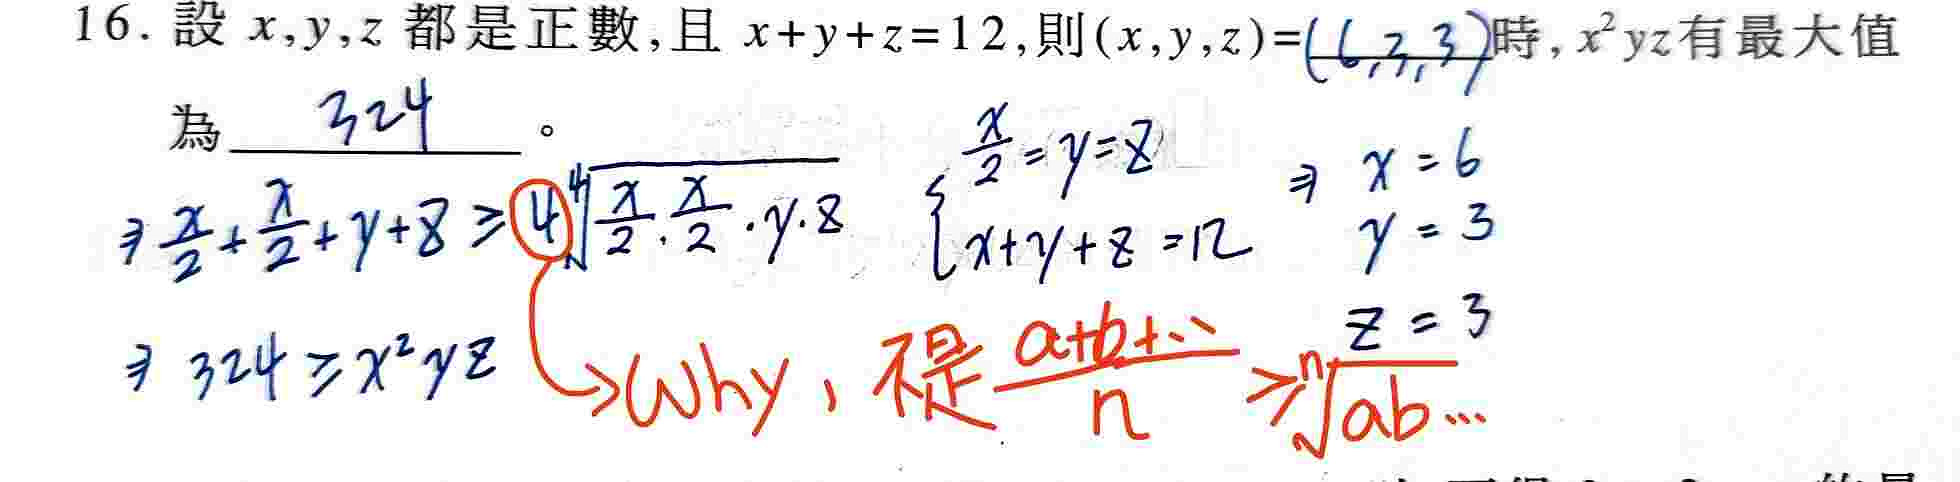 16. 設 x,y,z 都是正數,且 x+y+z=12,則(x,y,z)=(6,3,3)時,x²yz有最大值
為 324 。
x/2=y=z ⇒ x=6
⇒ x/2+x/2+y+z≥4∜(x/2·x/2·y·z) { x+y+z=12 y=3
z=3
⇒ 324≥x²yz →Why, 不是 (a+b+...)/n ≥ ⁿ√(ab...)